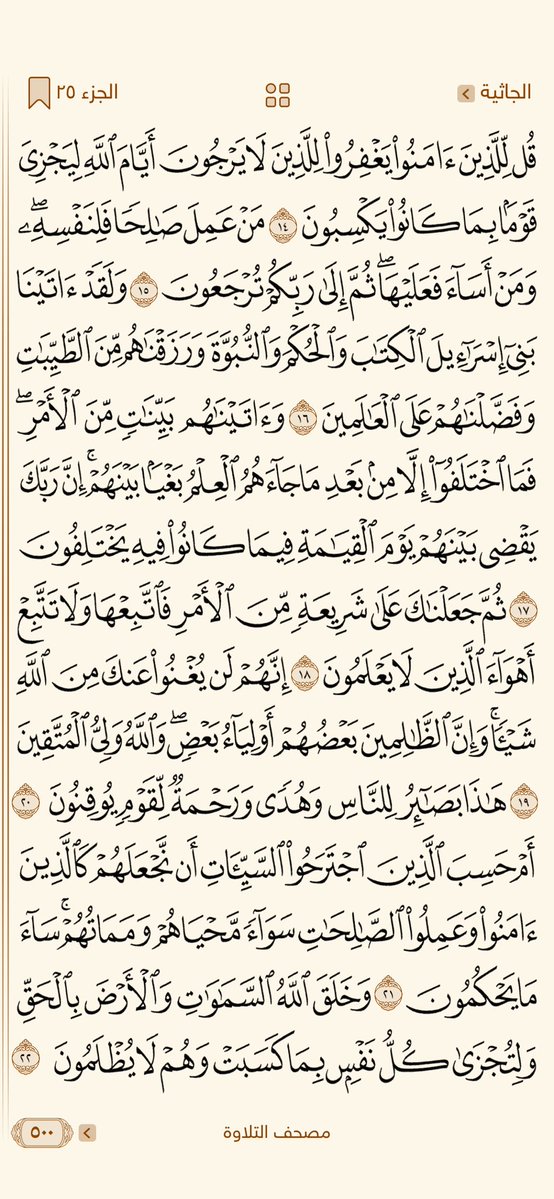 الجاثية
الجزء ٢٥
قُل لِّلَّذِينَ ءَامَنُوا۟ يَغْفِرُوا۟ لِلَّذِينَ لَا يَرْجُونَ أَيَّامَ ٱللَّهِ لِيَجْزِىَ
قَوْمًۢا بِمَا كَانُوا۟ يَكْسِبُونَ ١٤ مَنْ عَمِلَ صَٰلِحًا فَلِنَفْسِهِۦ ۖ
وَمَنْ أَسَآءَ فَعَلَيْهَا ۖ ثُمَّ إِلَىٰ رَبِّكُمْ تُرْجَعُونَ ١٥ وَلَقَدْ ءَاتَيْنَا
بَنِىٓ إِسْرَٰٓءِيلَ ٱلْكِتَٰبَ وَٱلْحُكْمَ وَٱلنُّبُوَّةَ وَرَزَقْنَٰهُم مِّنَ ٱلطَّيِّبَٰتِ
وَفَضَّلْنَٰهُمْ عَلَى ٱلْعَٰلَمِينَ ١٦ وَءَاتَيْنَٰهُم بَيِّنَٰتٍ مِّنَ ٱلْأَمْرِ ۖ
فَمَا ٱخْتَلَفُوٓا۟ إِلَّا مِنۢ بَعْدِ مَا جَآءَهُمُ ٱلْعِلْمُ بَغْيًۢا بَيْنَهُمْ ۚ إِنَّ رَبَّكَ
يَقْضِى بَيْنَهُمْ يَوْمَ ٱلْقِيَٰمَةِ فِيمَا كَانُوا۟ فِيهِ يَخْتَلِفُونَ
١٧ ثُمَّ جَعَلْنَٰكَ عَلَىٰ شَرِيعَةٍ مِّنَ ٱلْأَمْرِ فَٱتَّبِعْهَا وَلَا تَتَّبِعْ
أَهْوَآءَ ٱلَّذِينَ لَا يَعْلَمُونَ ١٨ إِنَّهُمْ لَن يُغْنُوا۟ عَنكَ مِنَ ٱللَّهِ
شَيْـًٔا ۚ وَإِنَّ ٱلظَّٰلِمِينَ بَعْضُهُمْ أَوْلِيَآءُ بَعْضٍ ۖ وَٱللَّهُ وَلِىُّ ٱلْمُتَّقِينَ
١٩ هَٰذَا بَصَٰٓئِرُ لِلنَّاسِ وَهُدًى وَرَحْمَةٌ لِّقَوْمٍ يُوقِنُونَ ٢٠
أَمْ حَسِبَ ٱلَّذِينَ ٱجْتَرَحُوا۟ ٱلسَّيِّـَٔاتِ أَن نَّجْعَلَهُمْ كَٱلَّذِينَ
ءَامَنُوا۟ وَعَمِلُوا۟ ٱلصَّٰلِحَٰتِ سَوَآءً مَّحْيَاهُمْ وَمَمَاتُهُمْ ۚ سَآءَ
مَا يَحْكُمُونَ ٢١ وَخَلَقَ ٱللَّهُ ٱلسَّمَٰوَٰتِ وَٱلْأَرْضَ بِٱلْحَقِّ
وَلِتُجْزَىٰ كُلُّ نَفْسٍۭ بِمَا كَسَبَتْ وَهُمْ لَا يُظْلَمُونَ ٢٢
مصحف التلاوة
٥٠٠